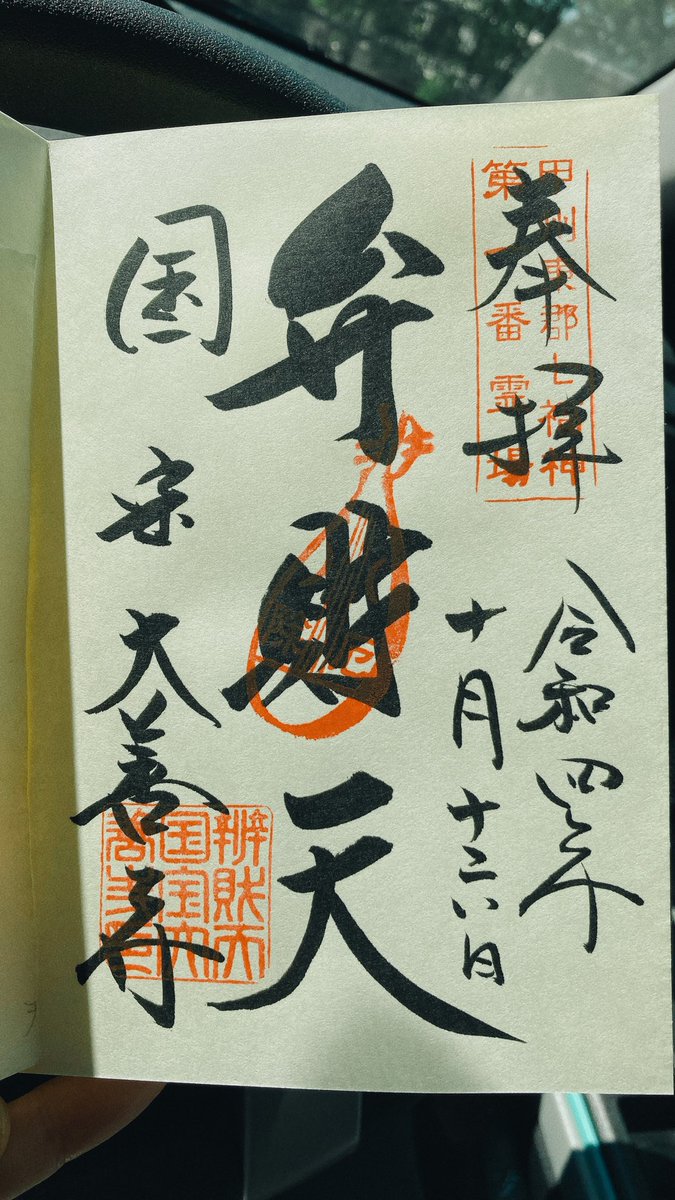 奉拝
甲州東郡七福神
第一番霊場
令和四年
十月十六日
弁財天
国宝 大善寺
辨財天
国宝大
善寺印